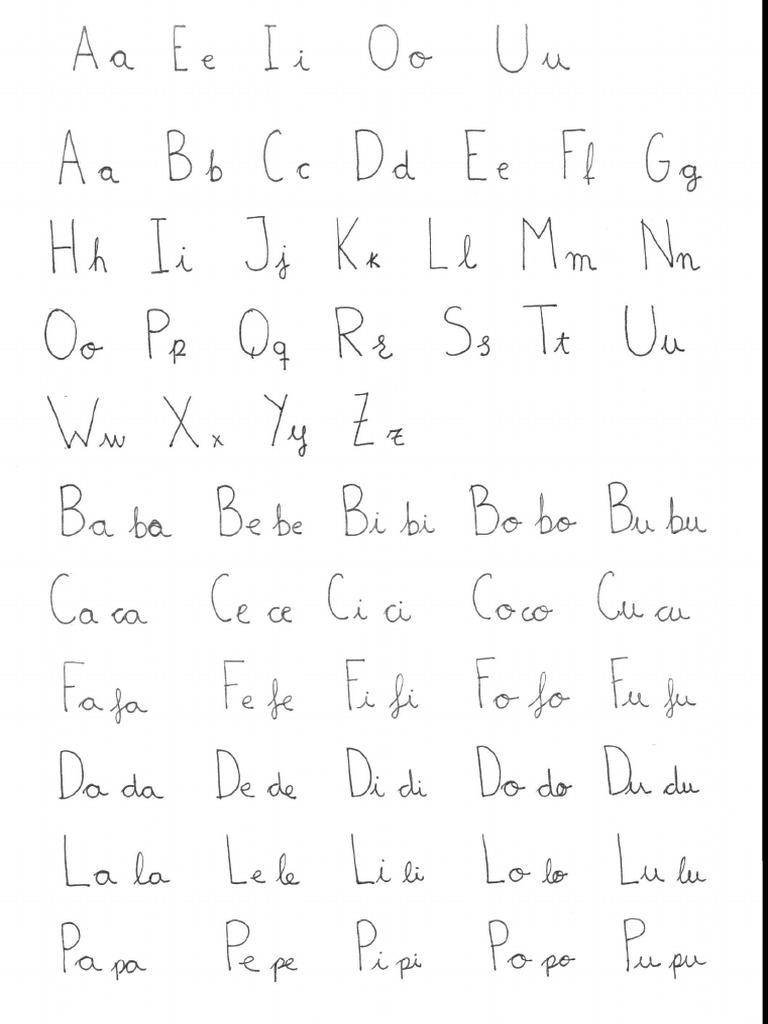 Aa Ee Ii Oo Uu
Aa Bb Cc Dd Ee Ff Gg
Hh Ii Jj Kk Ll Mm Nn
Oo Pp Qq Rr Ss Tt Uu
Ww Xx Yy Zz
Ba ba Be be Bi bi Bo bo Bu bu
Ca ca Ce ce Ci ci Co co Cu cu
Fa fa Fe fe Fi fi Fo fo Fu fu
Da da De de Di di Do do Du du
La la Le le Li li Lo lo Lu lu
Pa pa Pe pe Pi pi Po po Pu pu